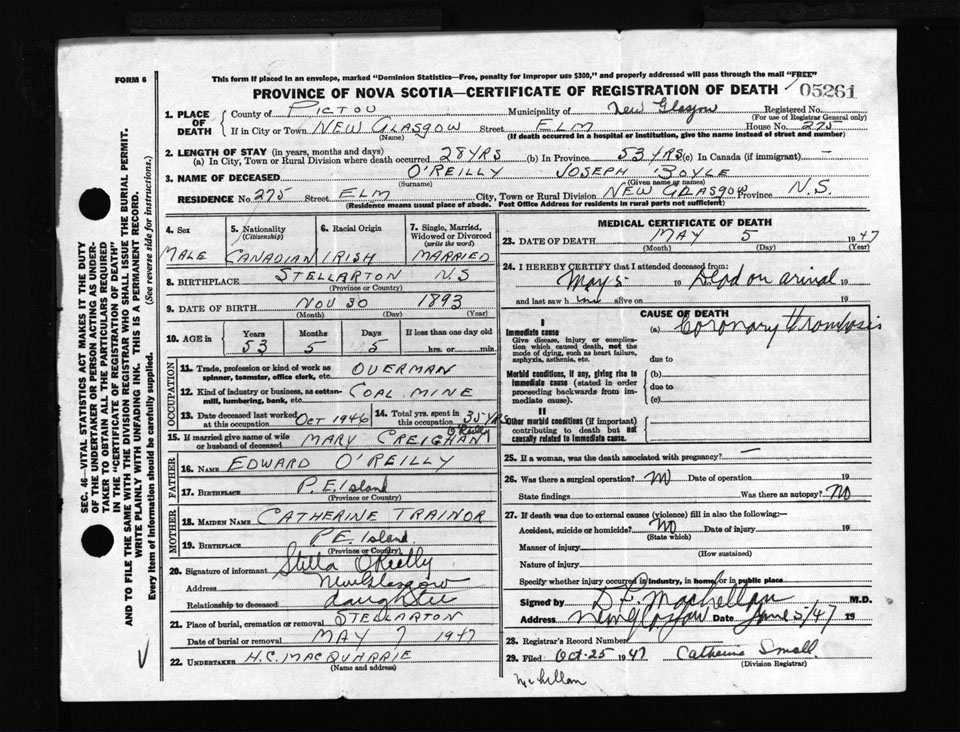 FORM 6
This form if placed in an envelope, marked "Dominion Statistics—Free, penalty for improper use $300," and properly addressed will pass through the mail "FREE"
PROVINCE OF NOVA SCOTIA—CERTIFICATE OF REGISTRATION OF DEATH 05261
SEC. 46—VITAL STATISTICS ACT MAKES IT THE DUTY
OF THE UNDERTAKER OR PERSON ACTING AS UNDER-
TAKER TO OBTAIN ALL THE PARTICULARS REQUIRED
IN THE "CERTIFICATE OF REGISTRATION OF DEATH"
AND TO FILE THE SAME WITH THE DIVISION REGISTRAR WHO SHALL ISSUE THE BURIAL PERMIT.
WRITE PLAINLY WITH UNFADING INK. THIS IS A PERMANENT RECORD.
Every item of information should be carefully supplied. (See reverse side for instructions.)
1. PLACE OF DEATH
County of PICTOU Municipality of New Glasgow Registered No.
(For use of Registrar General only)
If in City or Town NEW GLASGOW Street ELM House No. 275
(Name) (If death occurred in a hospital or institution, give the name instead of street and number)
2. LENGTH OF STAY (in years, months and days)
(a) In City, Town or Rural Division where death occurred 28 YRS (b) In Province 53 YRS (c) In Canada (if immigrant) —
3. NAME OF DECEASED O'REILLY JOSEPH BOYLE
(Surname) (Given name or names)
RESIDENCE No. 275 Street ELM City, Town or Rural Division NEW GLASGOW Province N.S.
(Residence means usual place of abode. Post Office Address for residents in rural parts not sufficient)
4. Sex
MALE
5. Nationality
(Citizenship)
CANADIAN
6. Racial Origin
IRISH
7. Single, Married,
Widowed or Divorced
(write the word)
MARRIED
8. BIRTHPLACE STELLARTON N.S
(Province or Country)
9. DATE OF BIRTH NOV 30 1893
(Month) (Day) (Year)
10. AGE in
Years Months Days If less than one day old
53 5 5 hrs. or min.
OCCUPATION
11. Trade, profession or kind of work as
spinner, teamster, office clerk, etc. OVERMAN
12. Kind of industry or business, as cotton-
mill, lumbering, bank, etc. COAL MINE
13. Date deceased last worked
at this occupation OCT 1946
14. Total yrs. spent in
this occupation 35 YRS
15. If married give name of wife
or husband of deceased MARY CREIGHAN O'Reilly
FATHER
16. NAME EDWARD O'REILLY
17. BIRTHPLACE P.E. Island
(Province or Country)
MOTHER
18. MAIDEN NAME CATHERINE TRAINOR
19. BIRTHPLACE P.E. Island
(Province or Country)
20. Signature of informant Stella O'Reilly
Address New Glasgow
Relationship to deceased daughter
21. Place of burial, cremation or removal STELLARTON
Date of burial or removal MAY 7 1947
22. UNDERTAKER H.C. MACQUARRIE
(Name and address)
MEDICAL CERTIFICATE OF DEATH
23. DATE OF DEATH MAY 5 1947
(Month) (Day) (Year)
24. I HEREBY CERTIFY that I attended deceased from:
May 5 19 Dead on arival 19
and last saw h im alive on 19
CAUSE OF DEATH
I
Immediate cause
Give disease, injury or complica-
tion which caused death, not the
mode of dying, such as heart failure,
asphyxia, asthenia, etc.
(a) Coronary Trombosis
due to
Morbid conditions, if any, giving rise to
immediate cause (stated in order
proceeding backwards from im-
mediate cause).
(b)
due to
(c)
II
Other morbid conditions (if important)
contributing to death but not
causally related to immediate cause.
25. If a woman, was the death associated with pregnancy? —
26. Was there a surgical operation? No Date of operation 19
State findings Was there an autopsy? NO
27. If death was due to external causes (violence) fill in also the following:—
Accident, suicide or homicide? NO Date of injury 19
(State which)
Manner of injury
(How sustained)
Nature of injury
Specify whether injury occurred in industry, in home or in public place
Signed by D F. MacLellan M.D.
Address New Glasgow Date June 5/47 19
28. Registrar's Record Number
29. Filed Oct-25 1947 Catherine Small
(Division Registrar)
McLellan